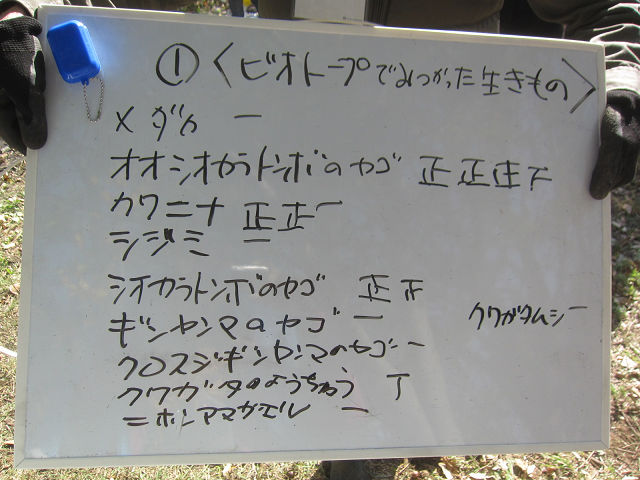 ① 〈ビオトープでみつかった生きもの〉
メダカ 一
オオシオカラトンボのヤゴ 正正正下
カワニナ 正正一
シジミ 一
シオカラトンボのヤゴ 正正
ギンヤンマのヤゴ 一
クワガタムシ 一
クロスジギンヤンマのヤゴ 一
クワガタのようちゅう 丁
ニホンアマガエル 一